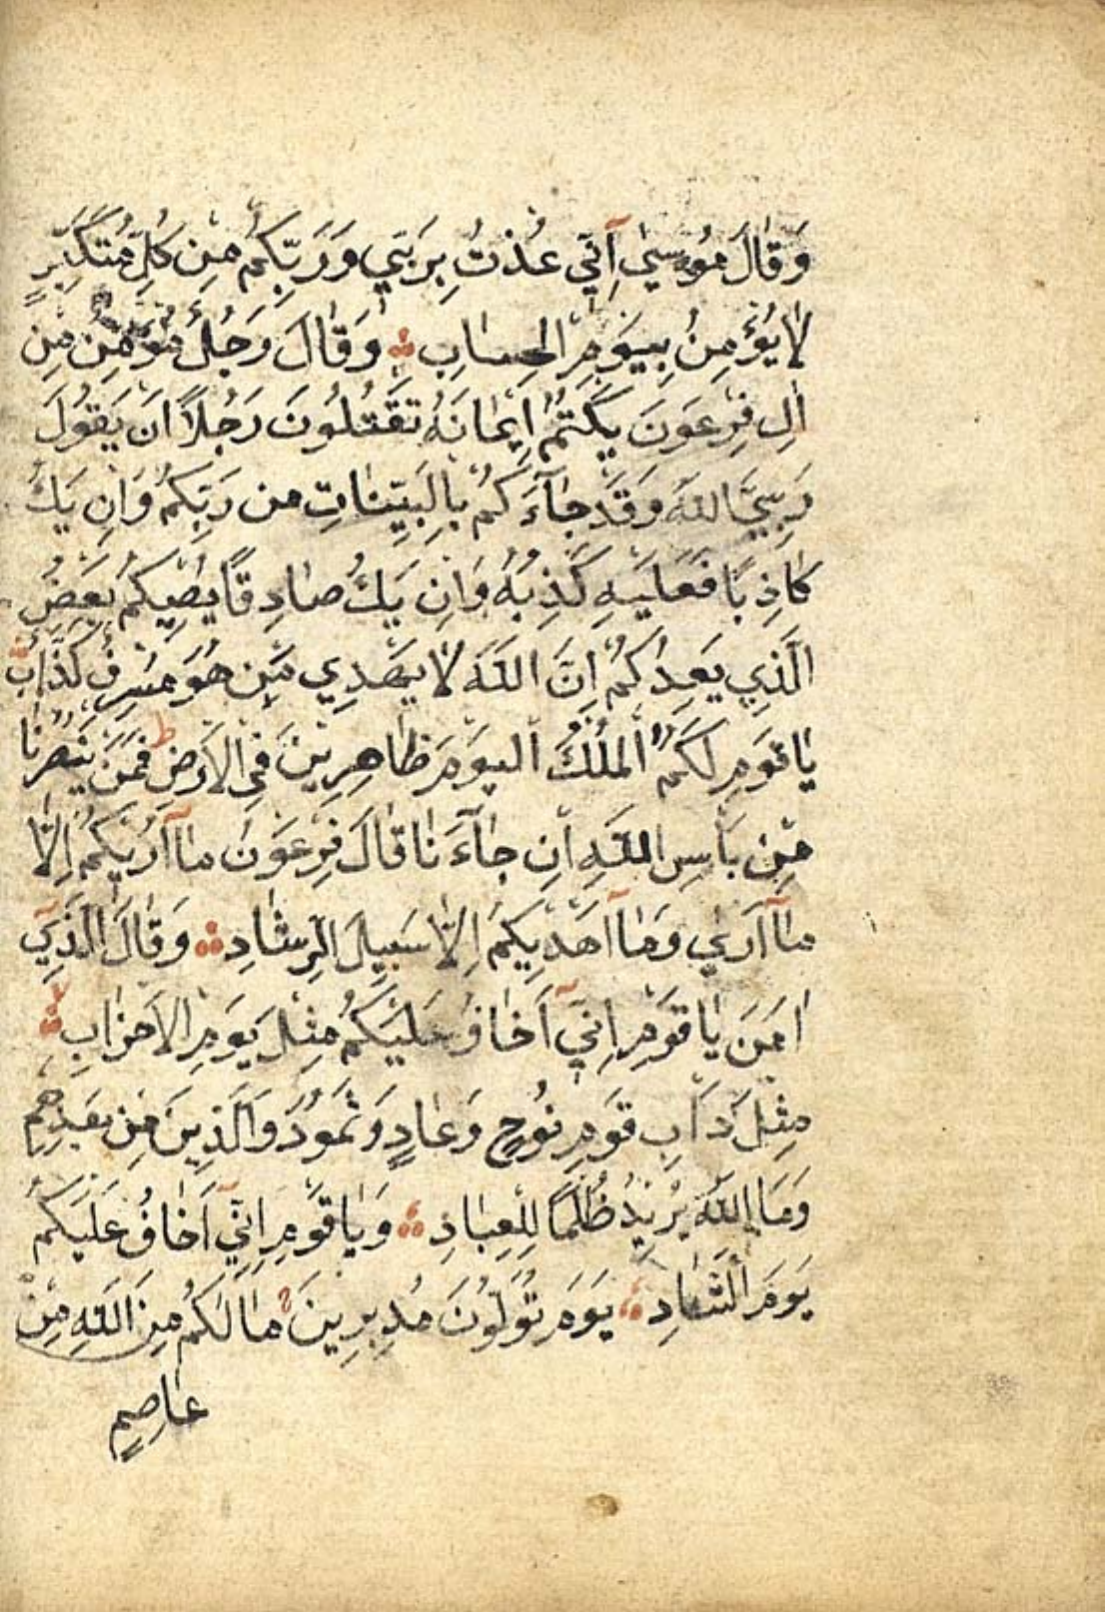 وَقَالَ مُوسٰى اِنّٓي عُذْتُ بِرَبّي وَرَبِّكُمْ مِنْ كُلِّ مُتَكَبِّرٍ
لَا يُؤْمِنُ بِيَوْمِ الْحِسَابِ وَقَالَ رَجُلٌ مُؤْمِنٌ مِنْ
اٰلِ فِرْعَوْنَ يَكْتُمُ اِيمَانَهُ تَقْتُلُونَ رَجُلًا اَنْ يَقُولَ
رَبِّيَ اللّٰهُ وَقَدْ جَآءَكُمْ بِالْبَيِّنَاتِ مِنْ رَبِّكُمْ وَاِنْ يَكُ
كَاذِبًا فَعَلَيْهِ كَذِبُهُ وَاِنْ يَكُ صَادِقًا يُصِبْكُمْ بَعْضُ
الَّذِي يَعِدُكُمْ اِنَّ اللّٰهَ لَا يَهْدِي مَنْ هُوَ مُسْرِفٌ كَذَّابٌ
يَا قَوْمِ لَكُمُ الْمُلْكُ الْيَوْمَ ظَاهِرِينَ فِي الْاَرْضِ ط فَمَنْ يَنْصُرُنَا
مِنْ بَأْسِ اللّٰهِ اِنْ جَآءَنَا قَالَ فِرْعَوْنُ مَآ اُرِيكُمْ اِلَّا
مَآ اَرٰي وَمَآ اَهْدِيكُمْ اِلَّا سَبِيلَ الرَّشَادِ وَقَالَ الَّذِٓي
اٰمَنَ يَا قَوْمِ اِنِّٓي اَخَافُ عَلَيْكُمْ مِثْلَ يَوْمِ الْاَحْزَابِ
مِثْلَ دَاْبِ قَوْمِ نُوحٍ وَعَادٍ وَثَمُودَ وَالَّذِينَ مِنْ بَعْدِهِمْ
وَمَا اللّٰهُ يُرِيدُ ظُلْمًا لِلْعِبَادِ وَيَا قَوْمِ اِنِّٓي اَخَافُ عَلَيْكُمْ
يَوْمَ التَّنَادِ يَوْمَ تُوَلُّونَ مُدْبِرِينَ مَا لَكُمْ مِنَ اللّٰهِ مِنْ
عَاصِمٍ